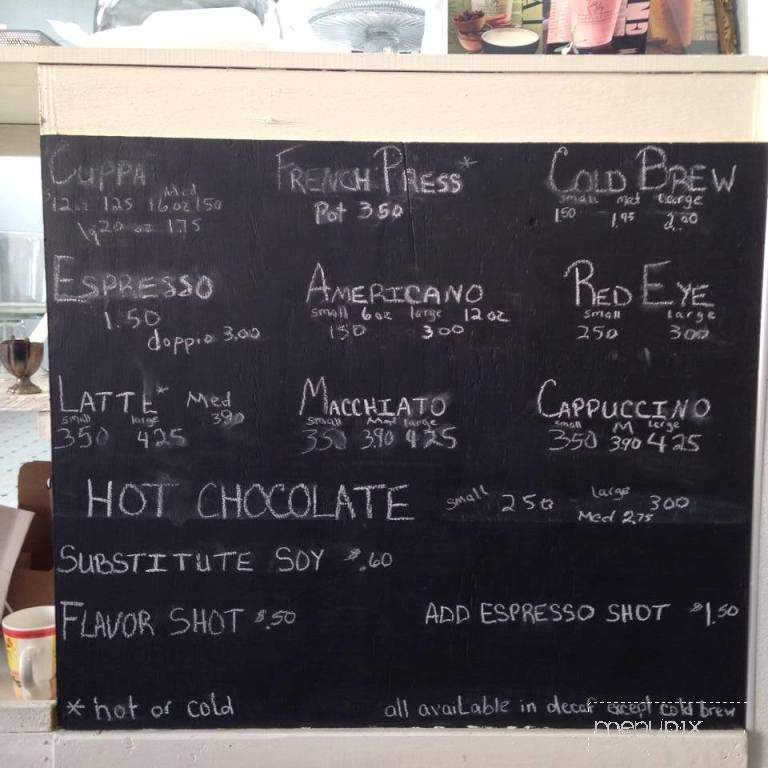 CUPPA
Med
12oz 125 16oz 150
lg 20 oz 175
FRENCH PRESS*
Pot 350
COLD BREW
small med large
150 1.95 2.00
ESPRESSO
1.50
doppio 3.00
AMERICANO
small 6oz large 12oz
150 300
RED EYE
small large
250 300
LATTE* Med
small large 390
350 425
MACCHIATO
small Med large
350 390 425
CAPPUCCINO
small M large
350 390 425
HOT CHOCOLATE small 250 large 300
Med 2.75
SUBSTITUTE SOY $.60
FLAVOR SHOT $.50
ADD ESPRESSO SHOT $1.50
* hot or cold
all available in decaf except cold brew
menupix